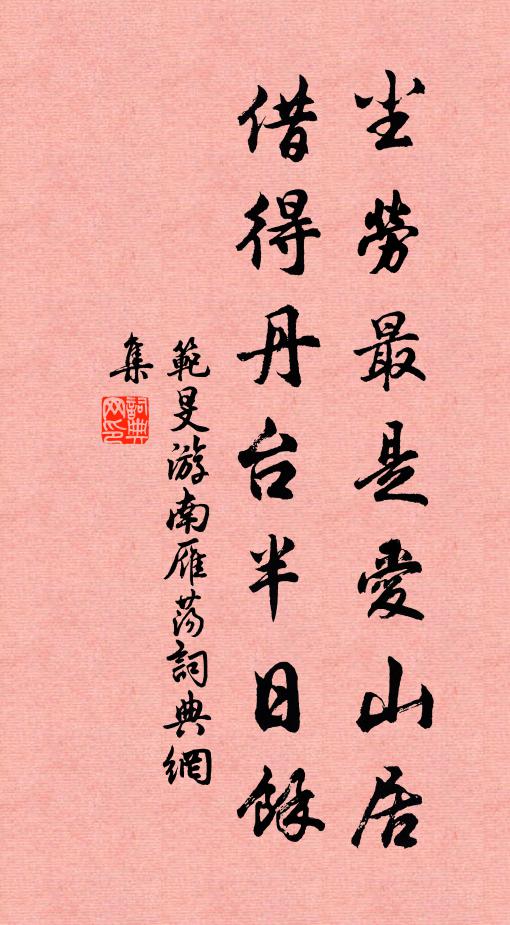 尘劳最是爱山居
借得丹台半日馀
範旻游南雁荡詞典網
集
詞典网印